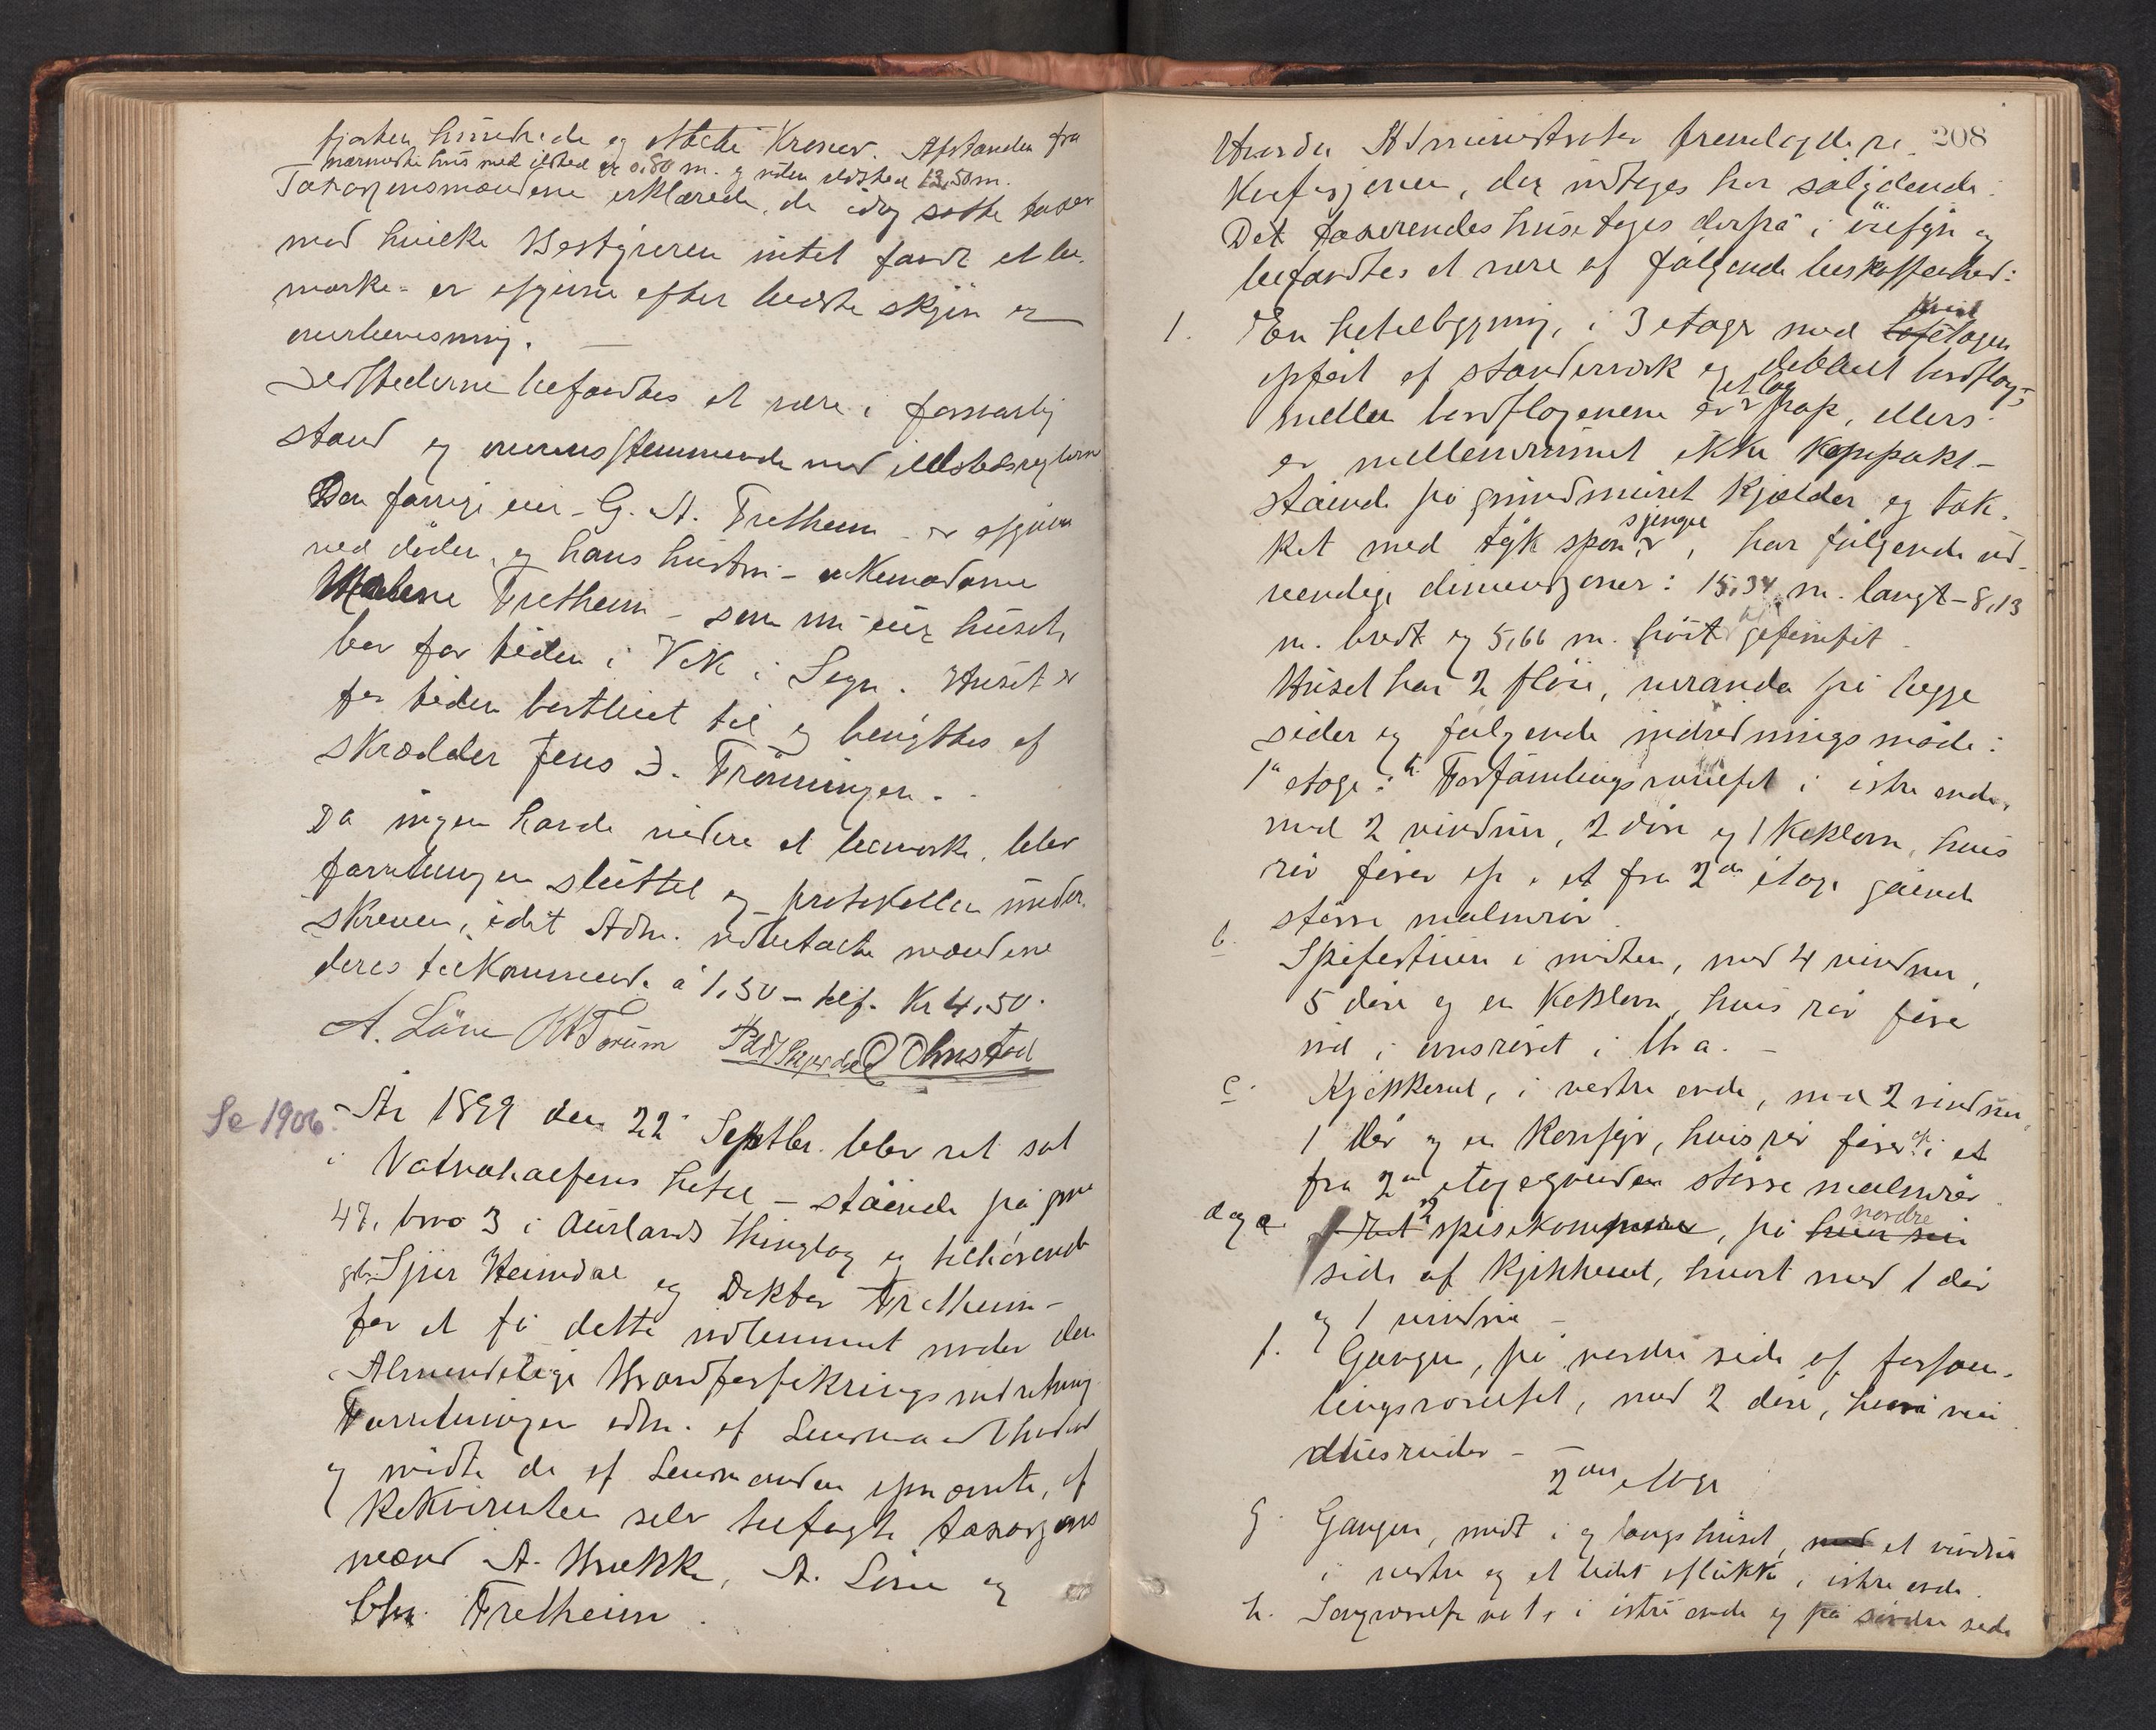 fjorten hundrede og otteti Kroner. Afstanden fra
nærmeste hus med ildsted er 0,80 m. og uden ildsted 12,50 m.
Taxasjonsmændene erklærede, de idag satte taxer
mod hvilke Bestyreren intet fandt at be-
mærke - er afgivne efter bedste skjön og
overbevisning. —
Ildstederne befandtes at være i forsvarlig
stand og overensstemmende med ildstedsreglerne
Den forrige eier - G. A. Fretheim - er afgaaen
ved döden, og hans hustru - enkemadame
Malene Fretheim - som nu eier huset,
bor for tiden i Vik i Sogn. Huset er
for tiden bortleiet til og benyttes af
skrædder Jens J. Frönningen.
Da ingen havde videre at bemærke, blev
forretningen sluttet og protokollen under-
skreven, idet Adm. udbetalte mændene
deres tilkommende à 1,50 - tils. Kr 4,50.
A. Löne Torum Ohnstad
Se 1906. År 1899 den 22 Septbr. blev ret sat
i Vatnahalsens hotel - stående på gno
47, bno 3 i Aurlands thinglag og tilhörende
Sjur Heimdal og Doktor Fretheim -
for at få dette indlemmet under den
Almindelige Brandforsikringsindretning.
Forretningen adm. af Lensmand
og mödte de af Lensmanden opnævnte, af
Rekvirenten selv tilsagte taxasjons
mænd A. Brekke, A. Löne og
Chr. Fretheim.
208
Hvorda Administrator fremlagde re-
kvisisjonen, der indtages her sålydende:
Det taxerendes huse toges derpå i öiesyn og
befandtes at være af fölgende beskaffenhed:
1. En hotelbygning, i 3 etager med kvist
opfört af standerværk og dobbelt bordlag,
mellem bordlagene er et lag pap, ellers
er mellemrummet ikke kompakt -
stående på grundmuret kjælder og tæk-
ket med tyk spon, har fölgende ud-
vendige dimensjoner: 15,34 m. langt - 8,13
m. bredt og 5,66 m. höit til gesimsen.
Huset har 2 flöie, veranda på begge
sider og fölgende indredningsmåde:
1ste etage: a. Forsamlingsværelset i östre ende,
med 2 vinduer, 2 döre og 1 Kakkelovn, hvis
rör förer op i et fra 2den etage gående
större malmrör.
b. Spisestuen i midten, med 4 vinduer,
5 döre og en Kakkelovn, hvis rör förer
ind i ovnsröret i Litr. a. -
c. Kjökkenet, i vestre ende, med 2 vinduer,
1 dör og en Komfyr, hvis rör förer op i et
fra 2den etage gående större malmrör.
d og e. 2 spisekammere, på nordre
side af kjökkenet, hvert med 1 dör
og 1 vindu -
f. Gangen, på nordre side af forsam-
lingsværelset, med 2 döre, hvori vin-
duesruder -
2den etage
g. Gangen, midt i og langs huset, med et vindu
i vestre og et lidet aflukke i östre ende.
h. Sengeværelse no 1, i östre ende og på söndre side